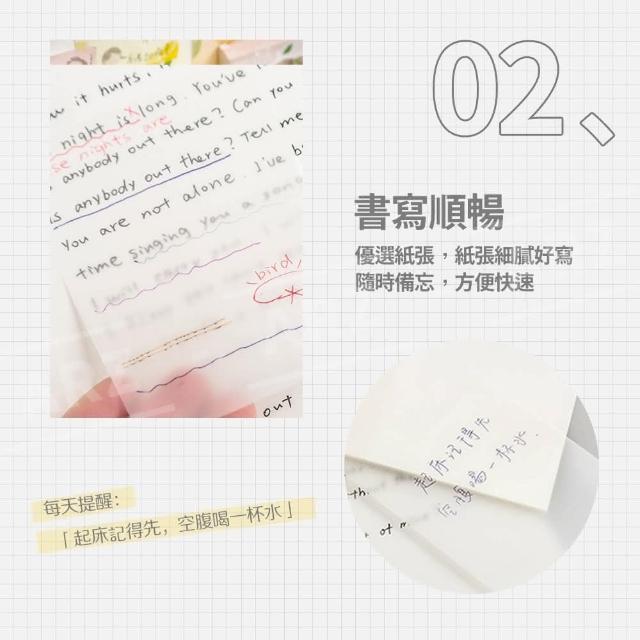 02、
書寫順暢
優選紙張，紙張細膩好寫
隨時備忘，方便快速
it hurts,
night is long. You've
se nights are
anybody out there? Can you
is anybody out there? Tell me
You are not alone. I've b
time singing you a song
I will
bird
out
起床记得先
空腹喝一杯水.
th
ot m
每天提醒：
「起床記得先，空腹喝一杯水」